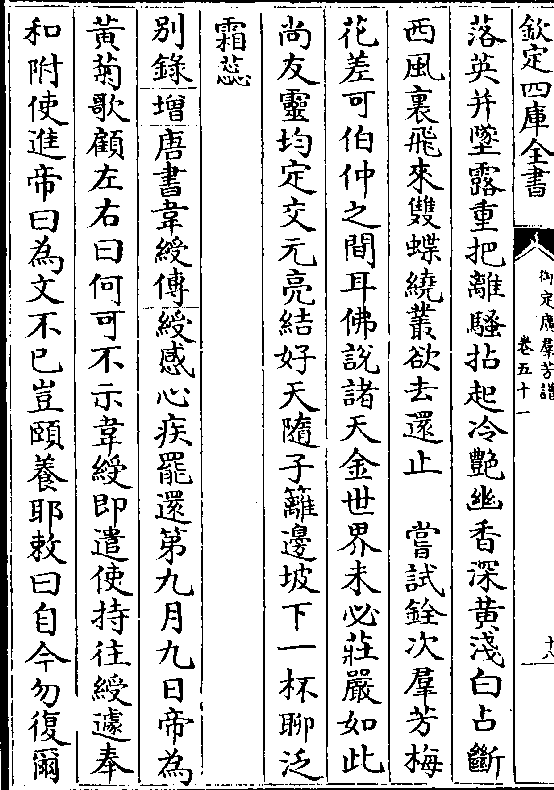 欽定四庫全書
御定廣羣芳譜
卷五十一
十八
落英并墜露重把離騷拈起冷艷幽香深黃淺白占斷
西風裏飛來雙蝶繞叢欲去還止　嘗試銓次羣芳梅
花差可伯仲之間耳佛說諸天金世界未必莊嚴如此
尚友靈均定交元亮結好天隨子籬邊坡下一杯聊泛
霜蕊
別錄增唐書韋綬傳綬感心疾罷還第九月九日帝為
黃菊歌顧左右曰何可不示韋綬即遣使持往綬遽奉
和附使進帝曰為文不已豈頤養耶敕曰自今勿復爾